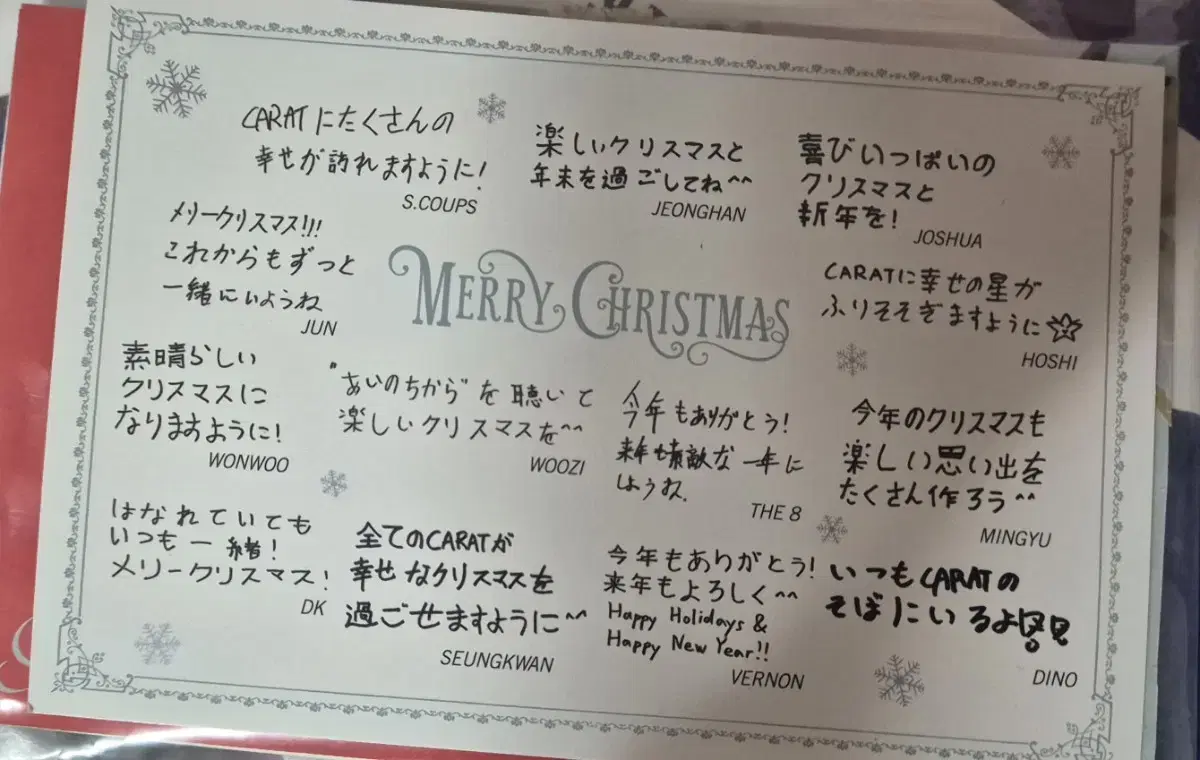 CARATにたくさんの
幸せが訪れますように!
S.COUPS
楽しいクリスマスと
年末を過ごしてね^^
JEONGHAN
喜びいっぱいの
クリスマスと
新年を!
JOSHUA
メリークリスマス!!!
これからもずっと
一緒にいようね
JUN
MERRY CHRISTMAS
CARATに幸せの星が
ふりそそぎますように
HOSHI
素晴らしい
クリスマスに
なりますように!
WONWOO
"あいのちから"を聴いて
楽しいクリスマスを^^
WOOZI
今年もありがとう!
来年も素敵な一年に
しようね.
THE 8
今年のクリスマスも
楽しい思い出を
たくさん作ろう^^
MINGYU
はなれていても
いつも一緒!
メリークリスマス!
DK
全てのCARATが
幸せなクリスマスを
過ごせますように^^
SEUNGKWAN
今年もありがとう!
来年もよろしく^^
Happy Holidays &
Happy New Year!!
VERNON
いつもCARATの
そばにいるよ
DINO